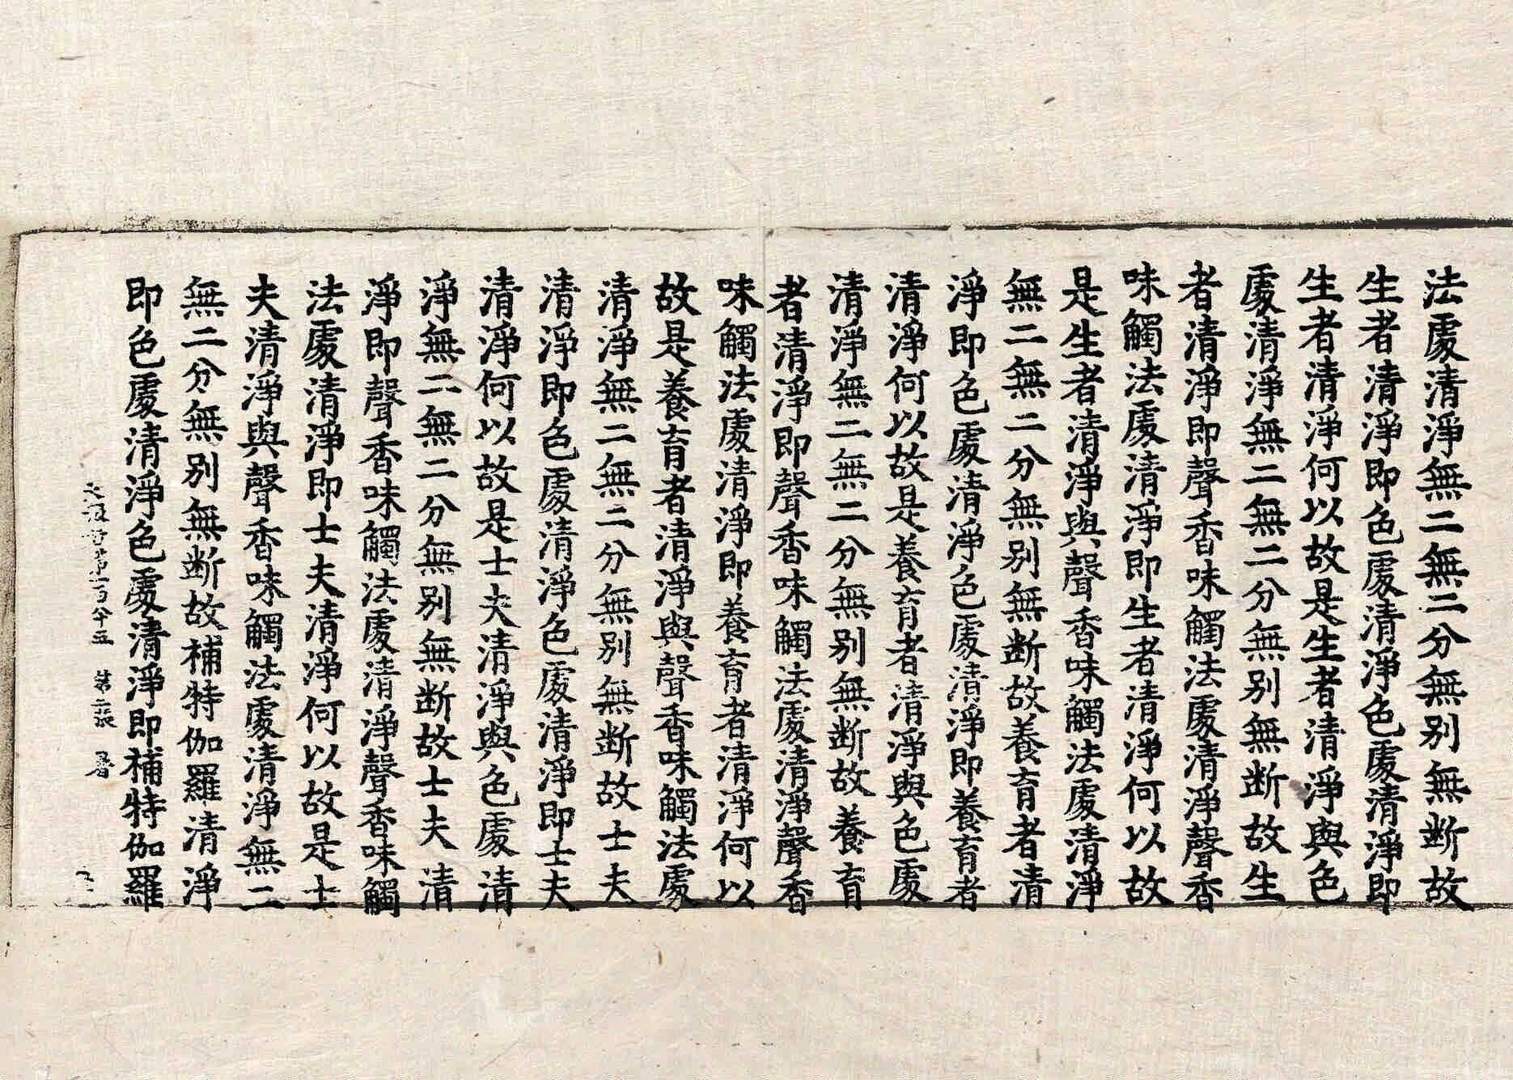 法處清淨無二無二分無别無断故
生者清淨即色處清淨色處清淨即
生者清淨何以故是生者清淨與色
處清淨無二無二分無别無断故生
者清淨即聲香味觸法處清淨聲香
味觸法處清淨即生者清淨何以故
是生者清淨與聲香味觸法處清淨
無二無二分無别無断故養育者清
淨即色處清淨色處清淨即養育者
清淨何以故是養育者清淨與色處
清淨無二無二分無别無断故養育
者清淨即聲香味觸法處清淨聲香
味觸法處清淨即養育者清淨何以
故是養育者清淨與聲香味觸法處
清淨無二無二分無别無断故士夫
清淨即色處清淨色處清淨即士夫
清淨何以故是士夫清淨與色處清
淨無二無二分無别無断故士夫清
淨即聲香味觸法處清淨聲香味觸
法處清淨即士夫清淨何以故是士
夫清淨與聲香味觸法處清淨無二
無二分無别無断故補特伽羅清淨
即色處清淨色處清淨即補特伽羅